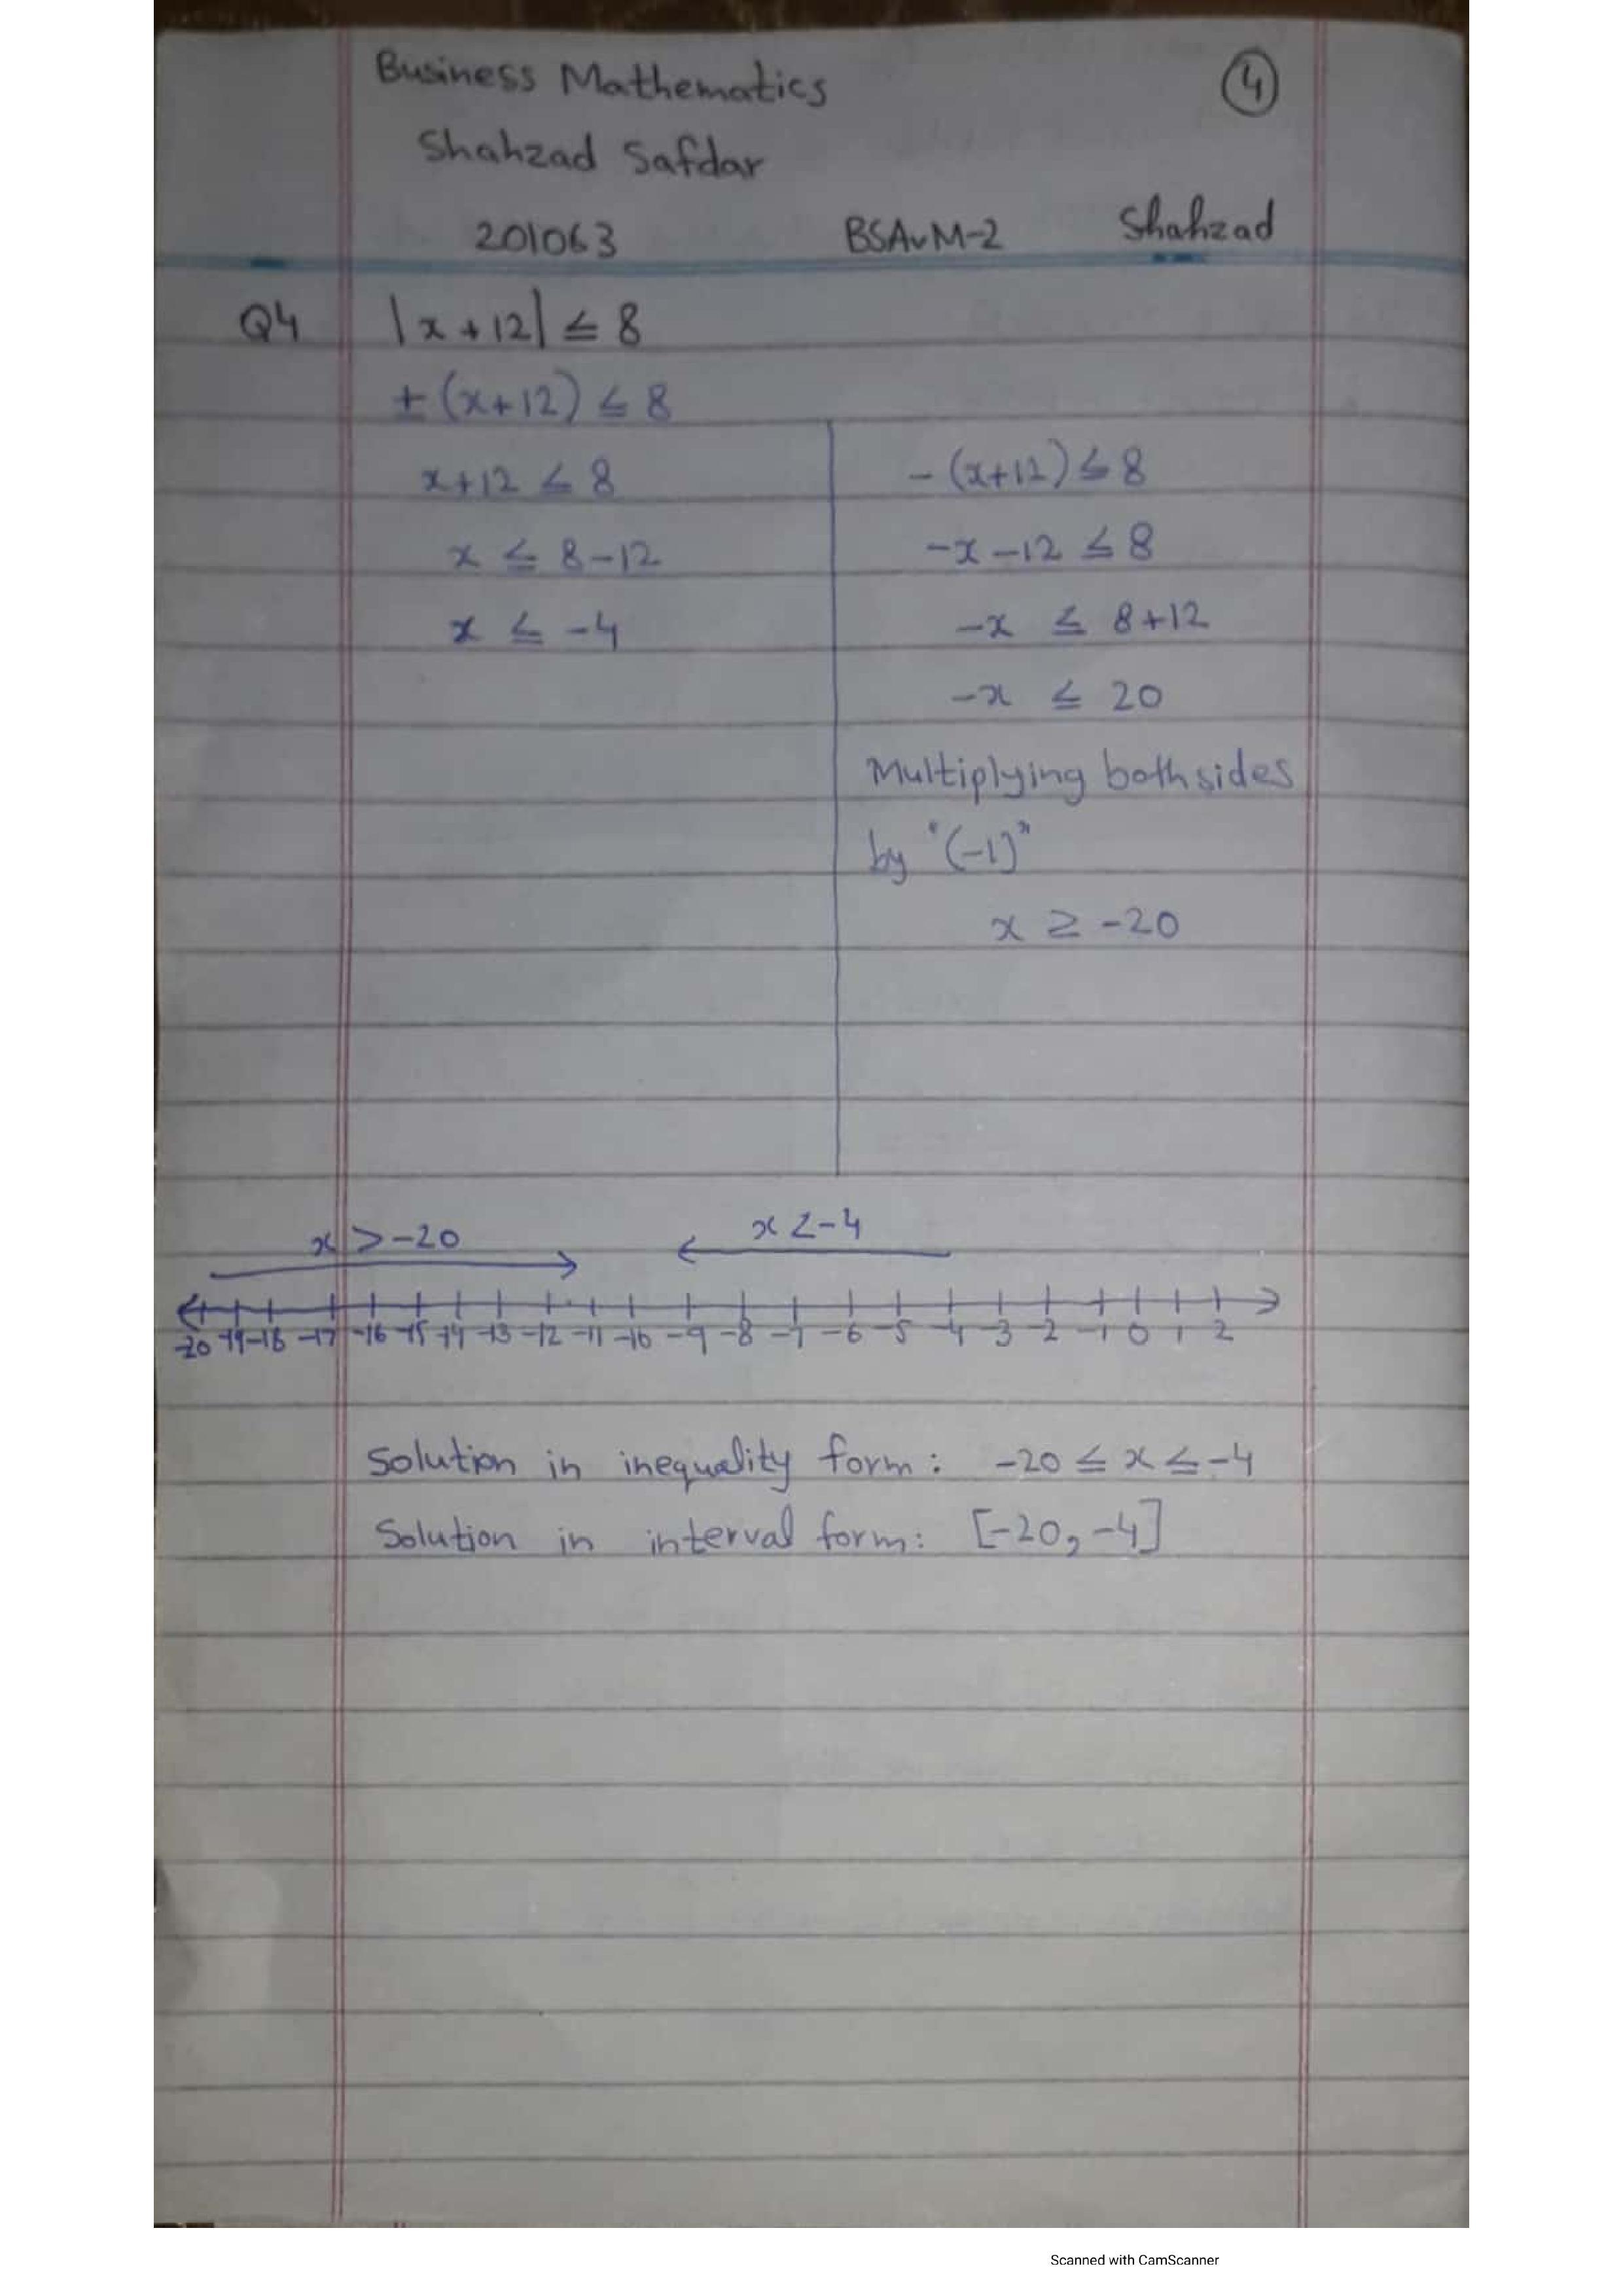 Business Mathematics
4
Shahzad Safdar
201063 BSAvM-2 Shahzad
Q4 |x+12| ≤ 8
± (x+12) ≤ 8
x+12 ≤ 8
x ≤ 8-12
x ≤ -4
-(x+12) ≤ 8
-x-12 ≤ 8
-x ≤ 8+12
-x ≤ 20
Multiplying both sides
by "(-1)"
x ≥ -20
x > -20 x < -4
-20 -19 -18 -17 -16 -15 -14 -13 -12 -11 -10 -9 -8 -7 -6 -5 -4 -3 -2 -1 0 1 2
Solution in inequality form: -20 ≤ x ≤ -4
Solution in interval form: [-20, -4]
Scanned with CamScanner